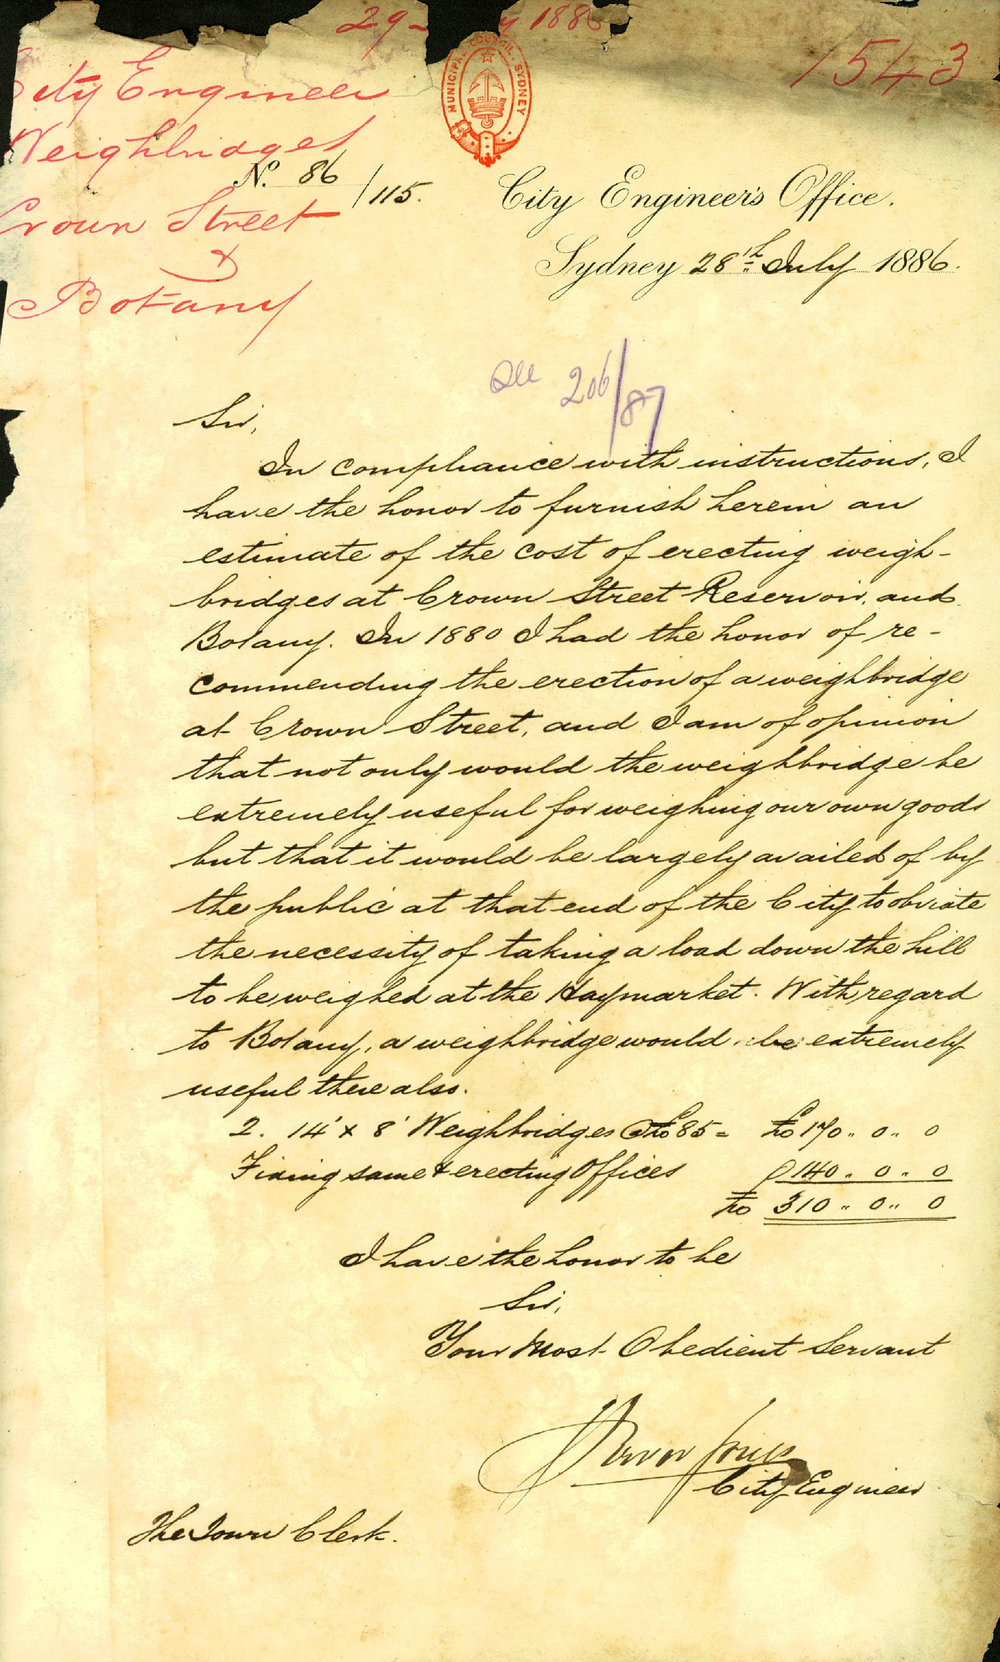 29 1886
1543
MUNICIPAL COUNCIL. SYDNEY
City Engineer
Weighbridges
Crown Street
&
Botany
No. 86/115.
City Engineer's Office.
Sydney 28th July 1886.
See 206/87
Sir,
In compliance with instructions, I
have the honor to furnish herein an
estimate of the cost of erecting weigh-
bridges at Crown Street Reservoir, and
Botany. In 1880 I had the honor of re-
commending the erection of a weighbridge
at Crown Street, and I am of opinion
that not only would the weighbridge be
extremely useful for weighing our own goods
but that it would be largely availed of by
the public at that end of the City to obviate
the necessity of taking a load down the hill
to be weighed at the Haymarket. With regard
to Botany, a weighbridge would be extremely
useful there also.
2. 14' x 8' Weighbridges @ £85 = £170 " 0 " 0
Fixing same & erecting Offices 140 " 0 " 0
£ 310 " 0 " 0
I have the honor to be
Sir,
Your Most Obedient Servant
Trevor Jones
City Engineer
The Town Clerk.